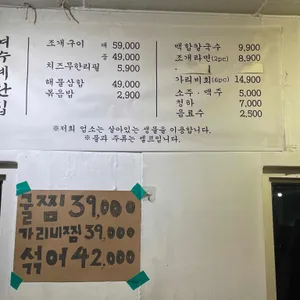 조개구이 대 59,000
중 49,000
치즈무한리필 5,900
해물삼합 49,000
볶음밥 2,900
백합칼국수 9,900
조개라면(2pc) 8,900
가리비회(6pc) 14,900
소주·맥주 5,000
청하 7,000
음료수 2,500
※저희 업소는 살아있는 생물을 이용합니다.
※물과 주류는 셀프입니다.
굴찜 39,000
가리비찜 39,000
섞어 42,000